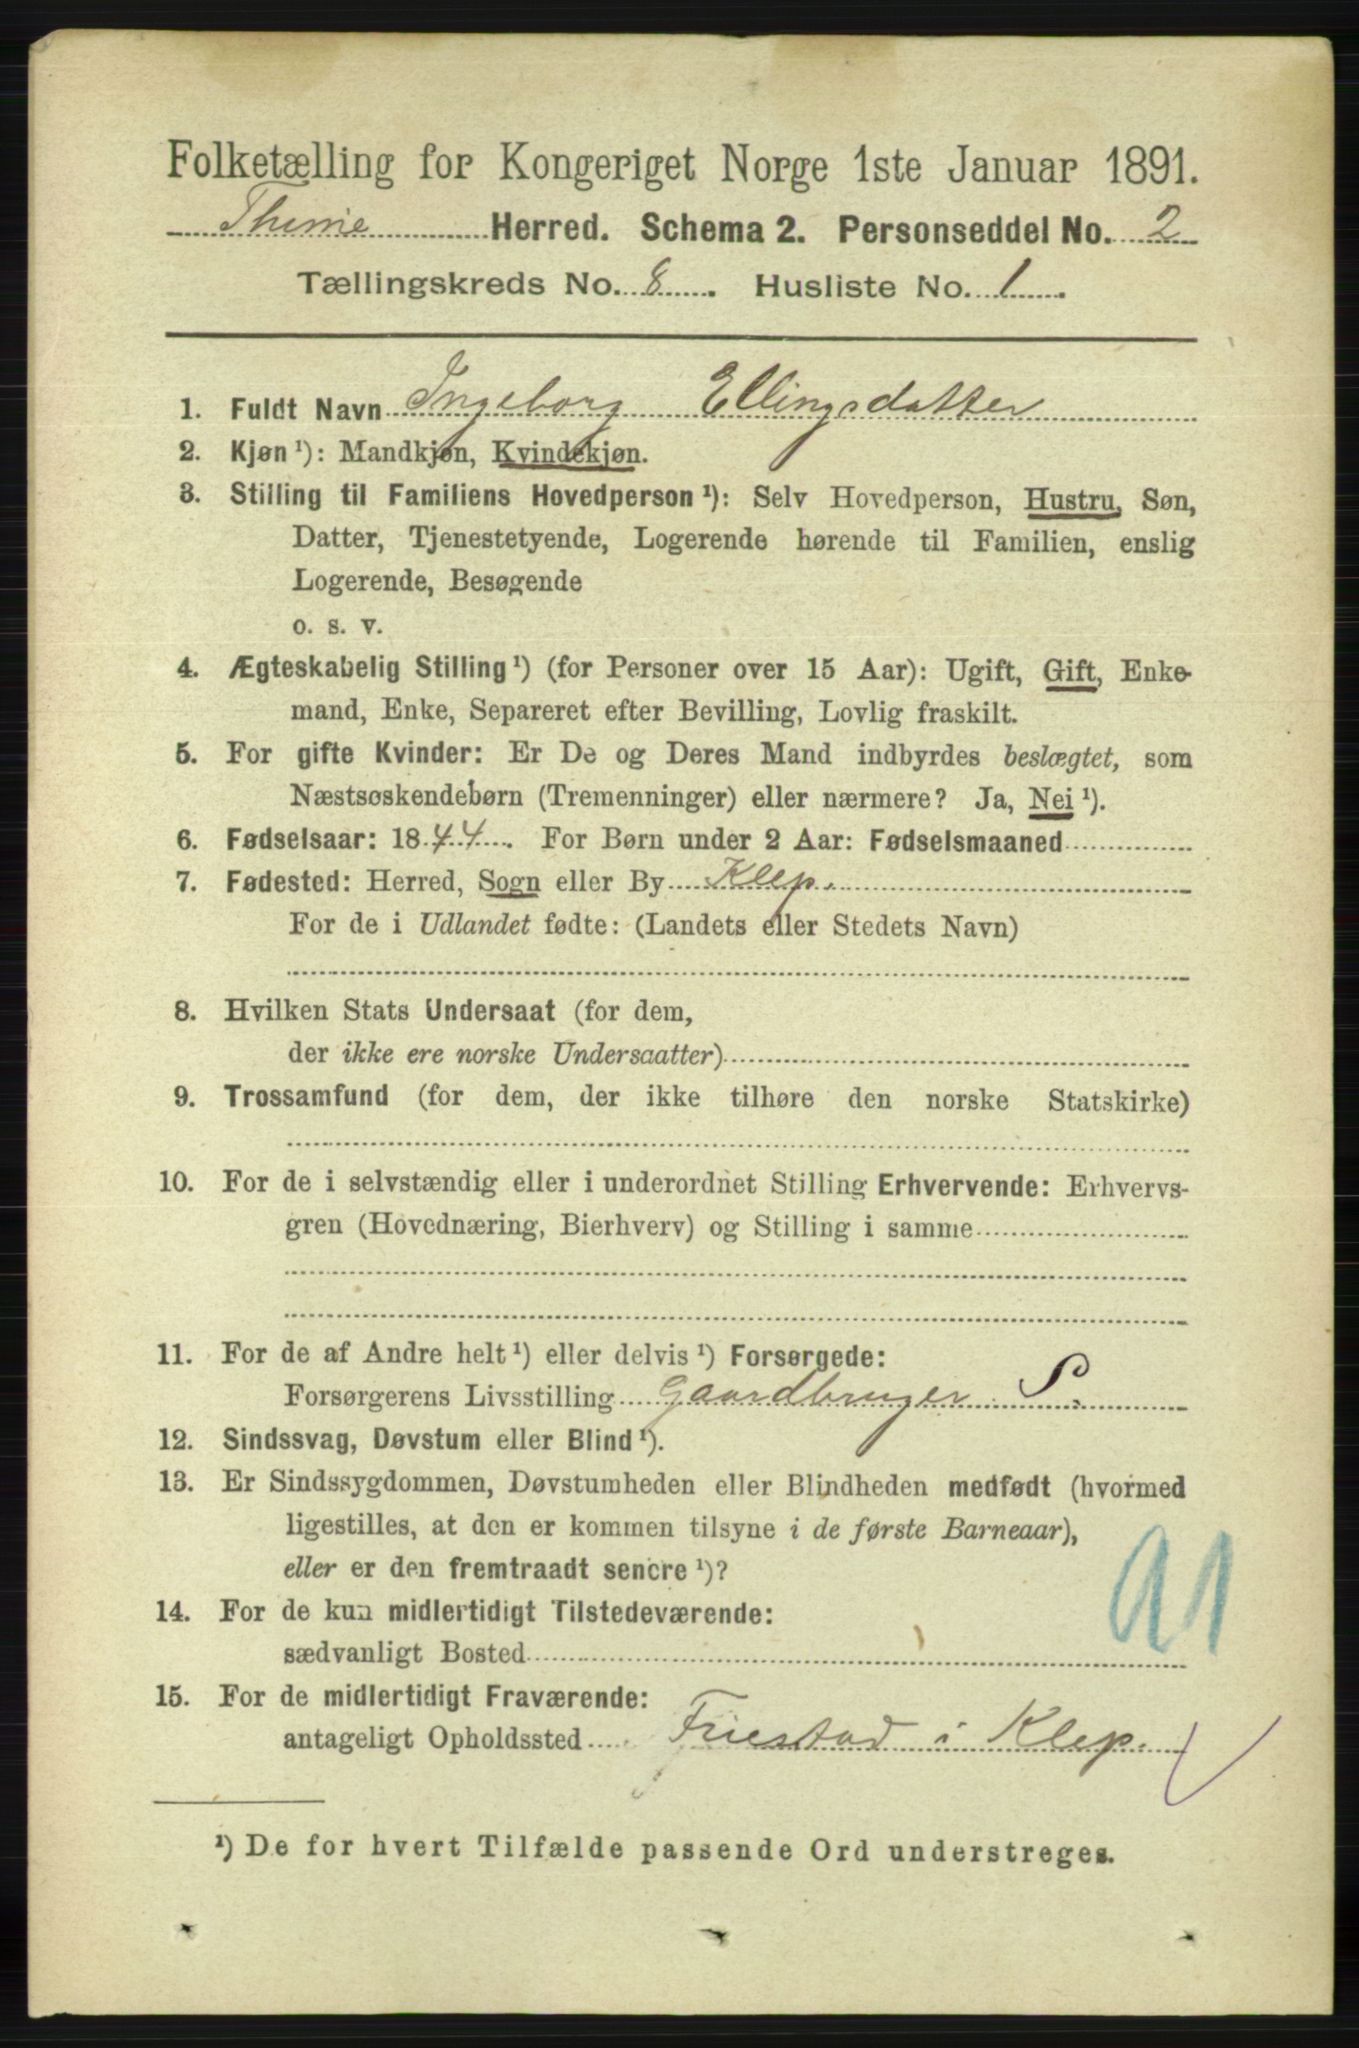 Folketælling for Kongeriget Norge 1ste Januar 1891.
Thime Herred. Schema 2. Personseddel No. 2
Tællingskreds No. 8. Husliste No. 1.
1. Fuldt Navn Ingeborg Ellingsdatter
2. Kjøn ¹): Mandkjøn, Kvindekjøn.
3. Stilling til Familiens Hovedperson ¹): Selv Hovedperson, Hustru, Søn,
Datter, Tjenestetyende, Logerende hørende til Familien, enslig
Logerende, Besøgende
o. s. v.
4. Ægteskabelig Stilling ¹) (for Personer over 15 Aar): Ugift, Gift, Enke-
mand, Enke, Separeret efter Bevilling, Lovlig fraskilt.
5. For gifte Kvinder: Er De og Deres Mand indbyrdes beslægtet, som
Næstsøskendebørn (Tremenninger) eller nærmere? Ja, Nei ¹).
6. Fødselsaar: 1844. For Børn under 2 Aar: Fødselsmaaned
7. Fødested: Herred, Sogn eller By Klep.
For de i Udlandet fødte: (Landets eller Stedets Navn)
8. Hvilken Stats Undersaat (for dem,
der ikke ere norske Undersaatter)
9. Trossamfund (for dem, der ikke tilhøre den norske Statskirke)
10. For de i selvstændig eller i underordnet Stilling Erhvervende: Erhvervs-
gren (Hovednæring, Bierhverv) og Stilling i samme
11. For de af Andre helt ¹) eller delvis ¹) Forsørgede:
Forsørgerens Livsstilling Gaardbruger S.
12. Sindssvag, Døvstum eller Blind ¹).
13. Er Sindssygdommen, Døvstumheden eller Blindheden medfødt (hvormed
ligestilles, at den er kommen tilsyne i de første Barneaar),
eller er den fremtraadt senere ¹)?
91
14. For de kun midlertidigt Tilstedeværende:
sædvanligt Bosted
15. For de midlertidigt Fraværende:
antageligt Opholdssted Friestad i Klep.
¹) De for hvert Tilfælde passende Ord understreges.